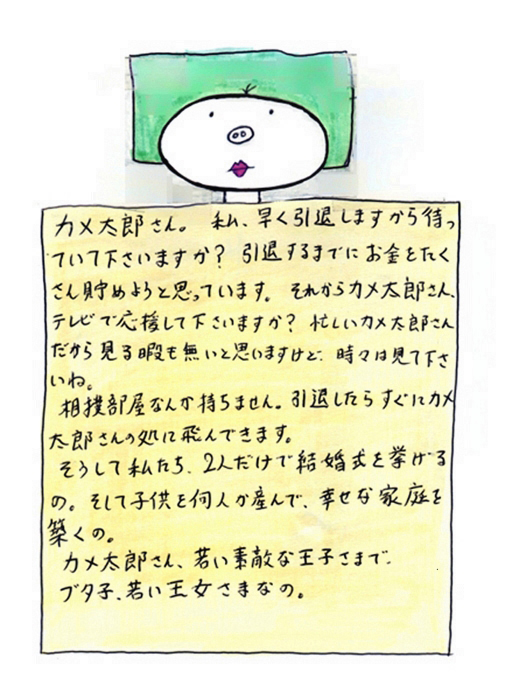 カメ太郎さん。 私、早く引退しますから待っ
ていて下さいますか？ 引退するまでにお金をたく
さん貯めようと思っています。それからカメ太郎さん、
テレビで応援して下さいますか？ 忙しいカメ太郎さん
だから見る暇も無いと思いますけど、時々は見て下さ
いね。
相撲部屋なんか持ちません。引退したらすぐにカメ
太郎さんの処に飛んできます。
そうして私たち、2人だけで結婚式を挙げる
の。そして子供を何人か産んで、幸せな家庭を
築くの。
カメ太郎さん、若い素敵な王子さまで、
ブタ子、若い王女さまなの。